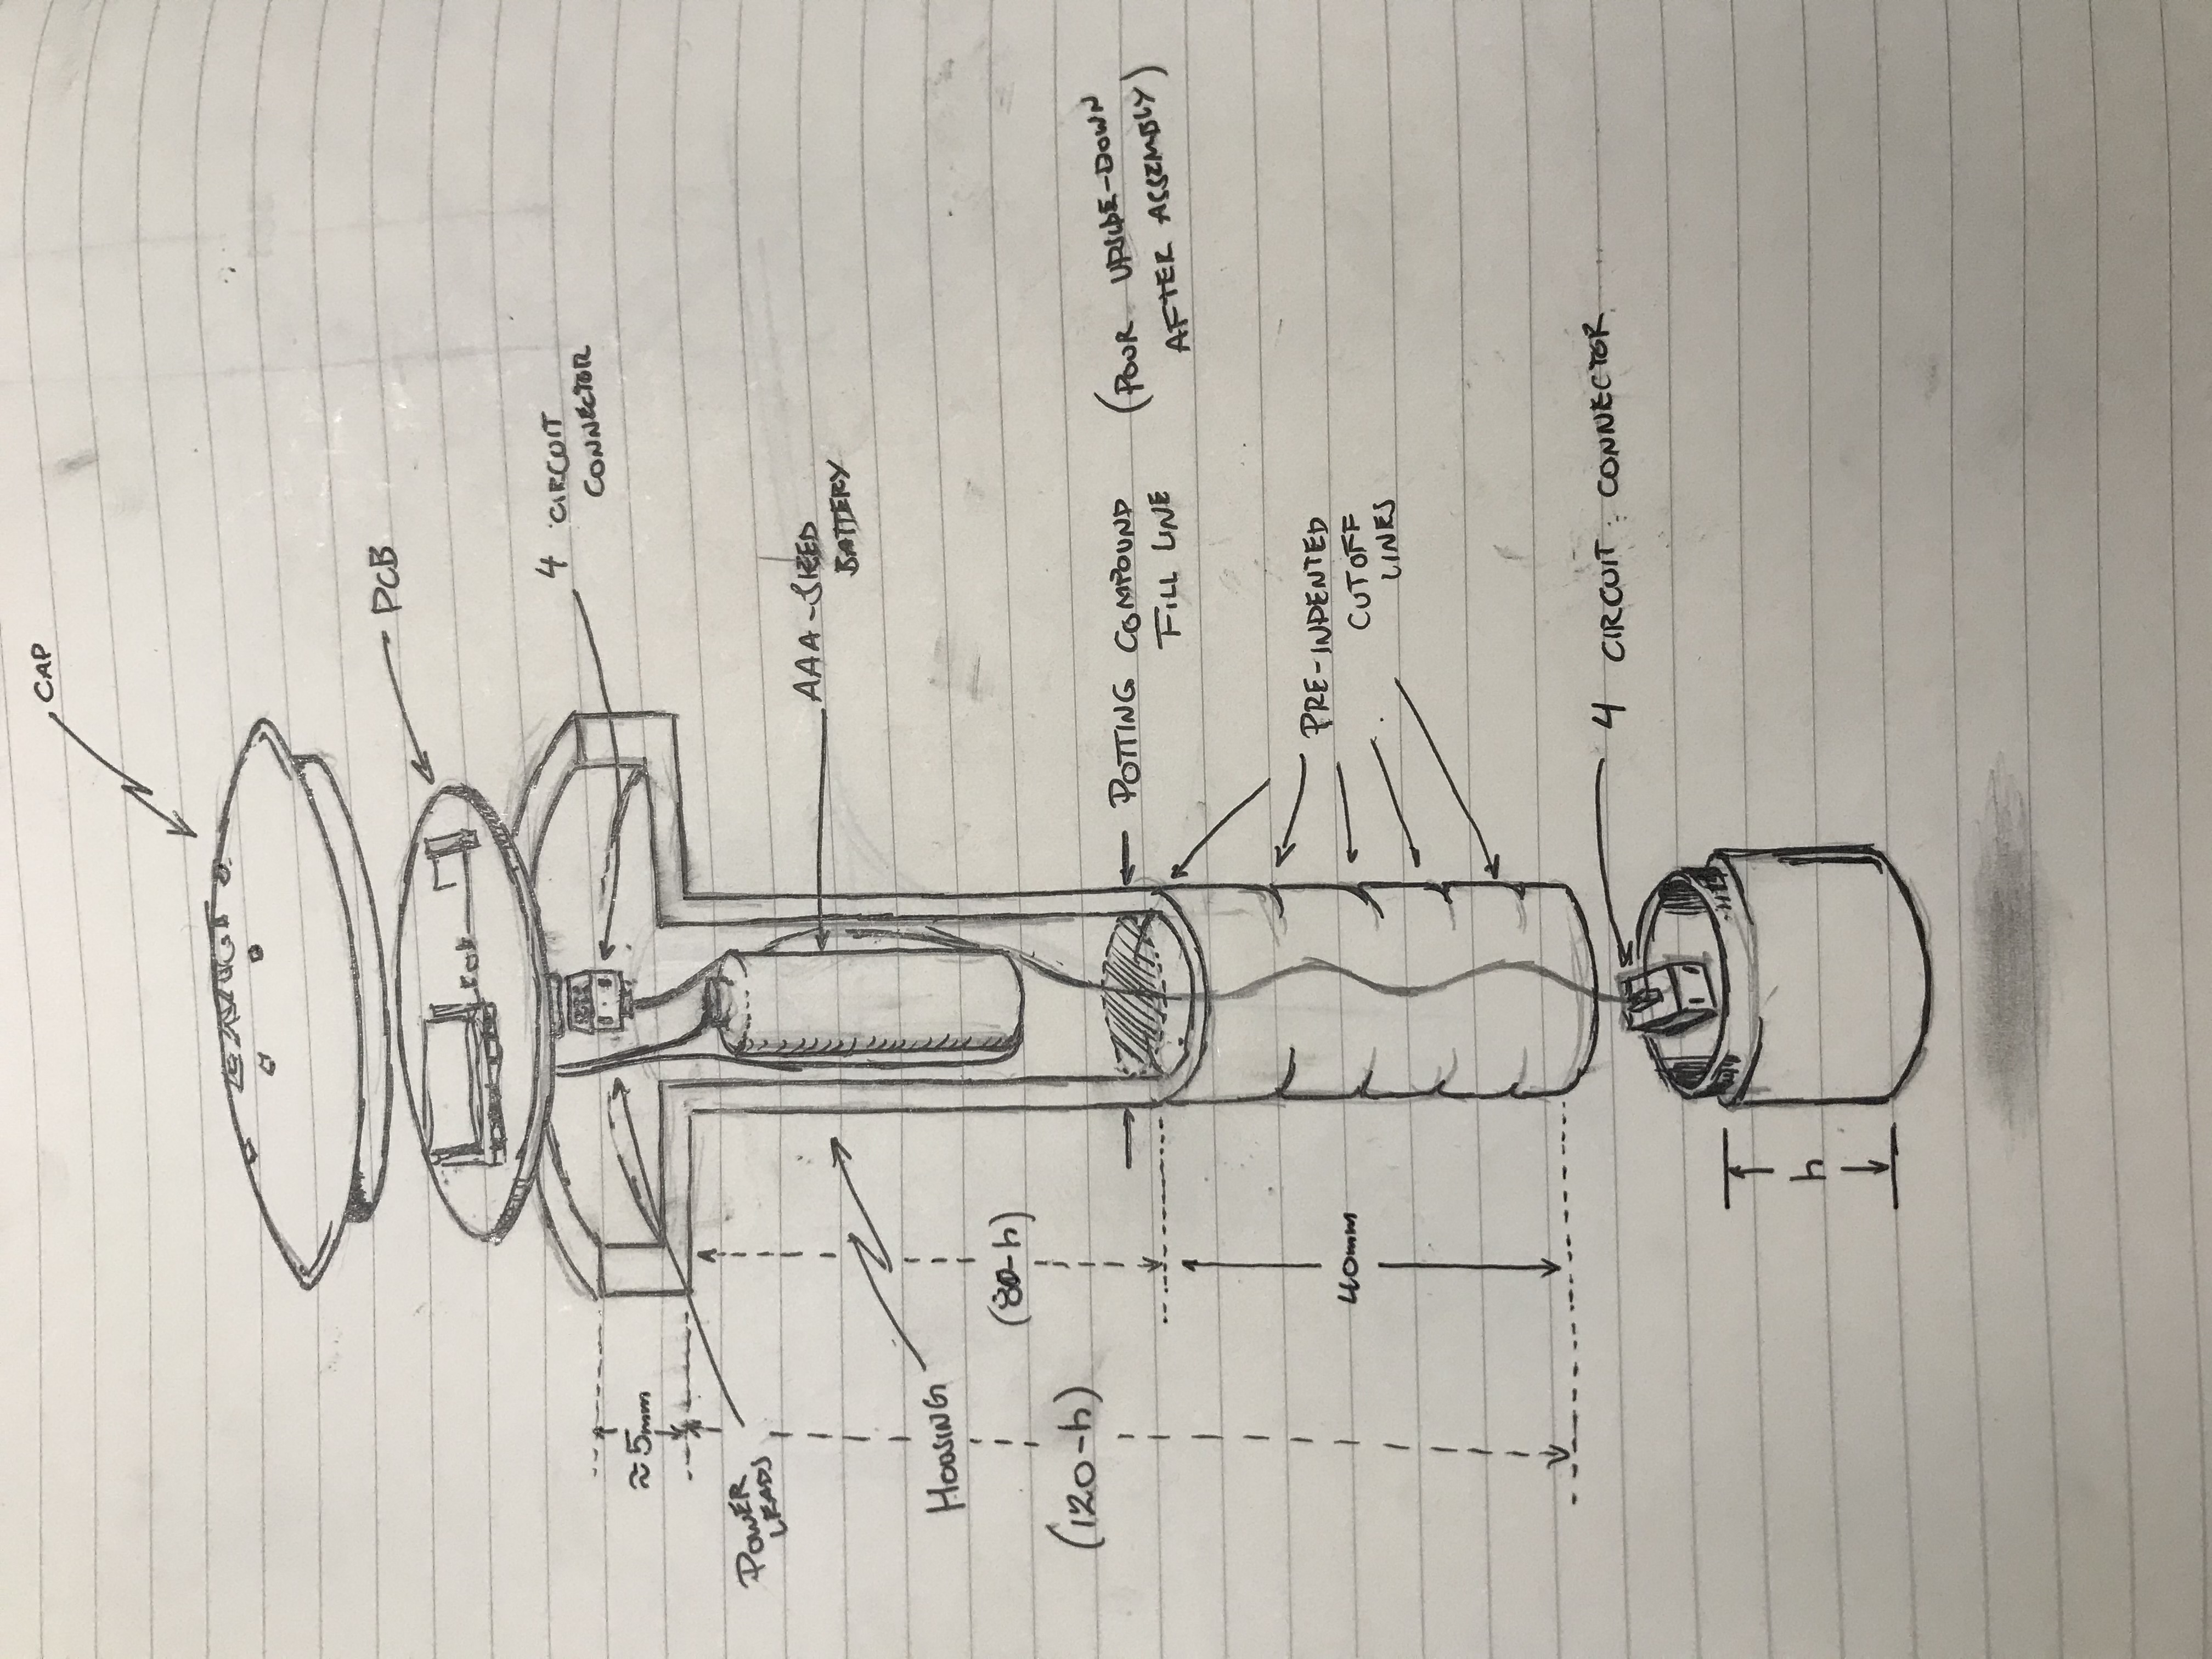 CAP
PCB
4 CIRCUIT
CONNECTOR
≈5mm
POWER
LEADS
AAA-SIZED
BATTERY
HOUSING
(80-h)
(120-h)
POTTING COMPOUND
FILL LINE
(POUR UPSIDE-DOWN
AFTER ASSEMBLY)
PRE-INDENTED
CUTOFF
LINES
40mm
4 CIRCUIT CONNECTOR
h